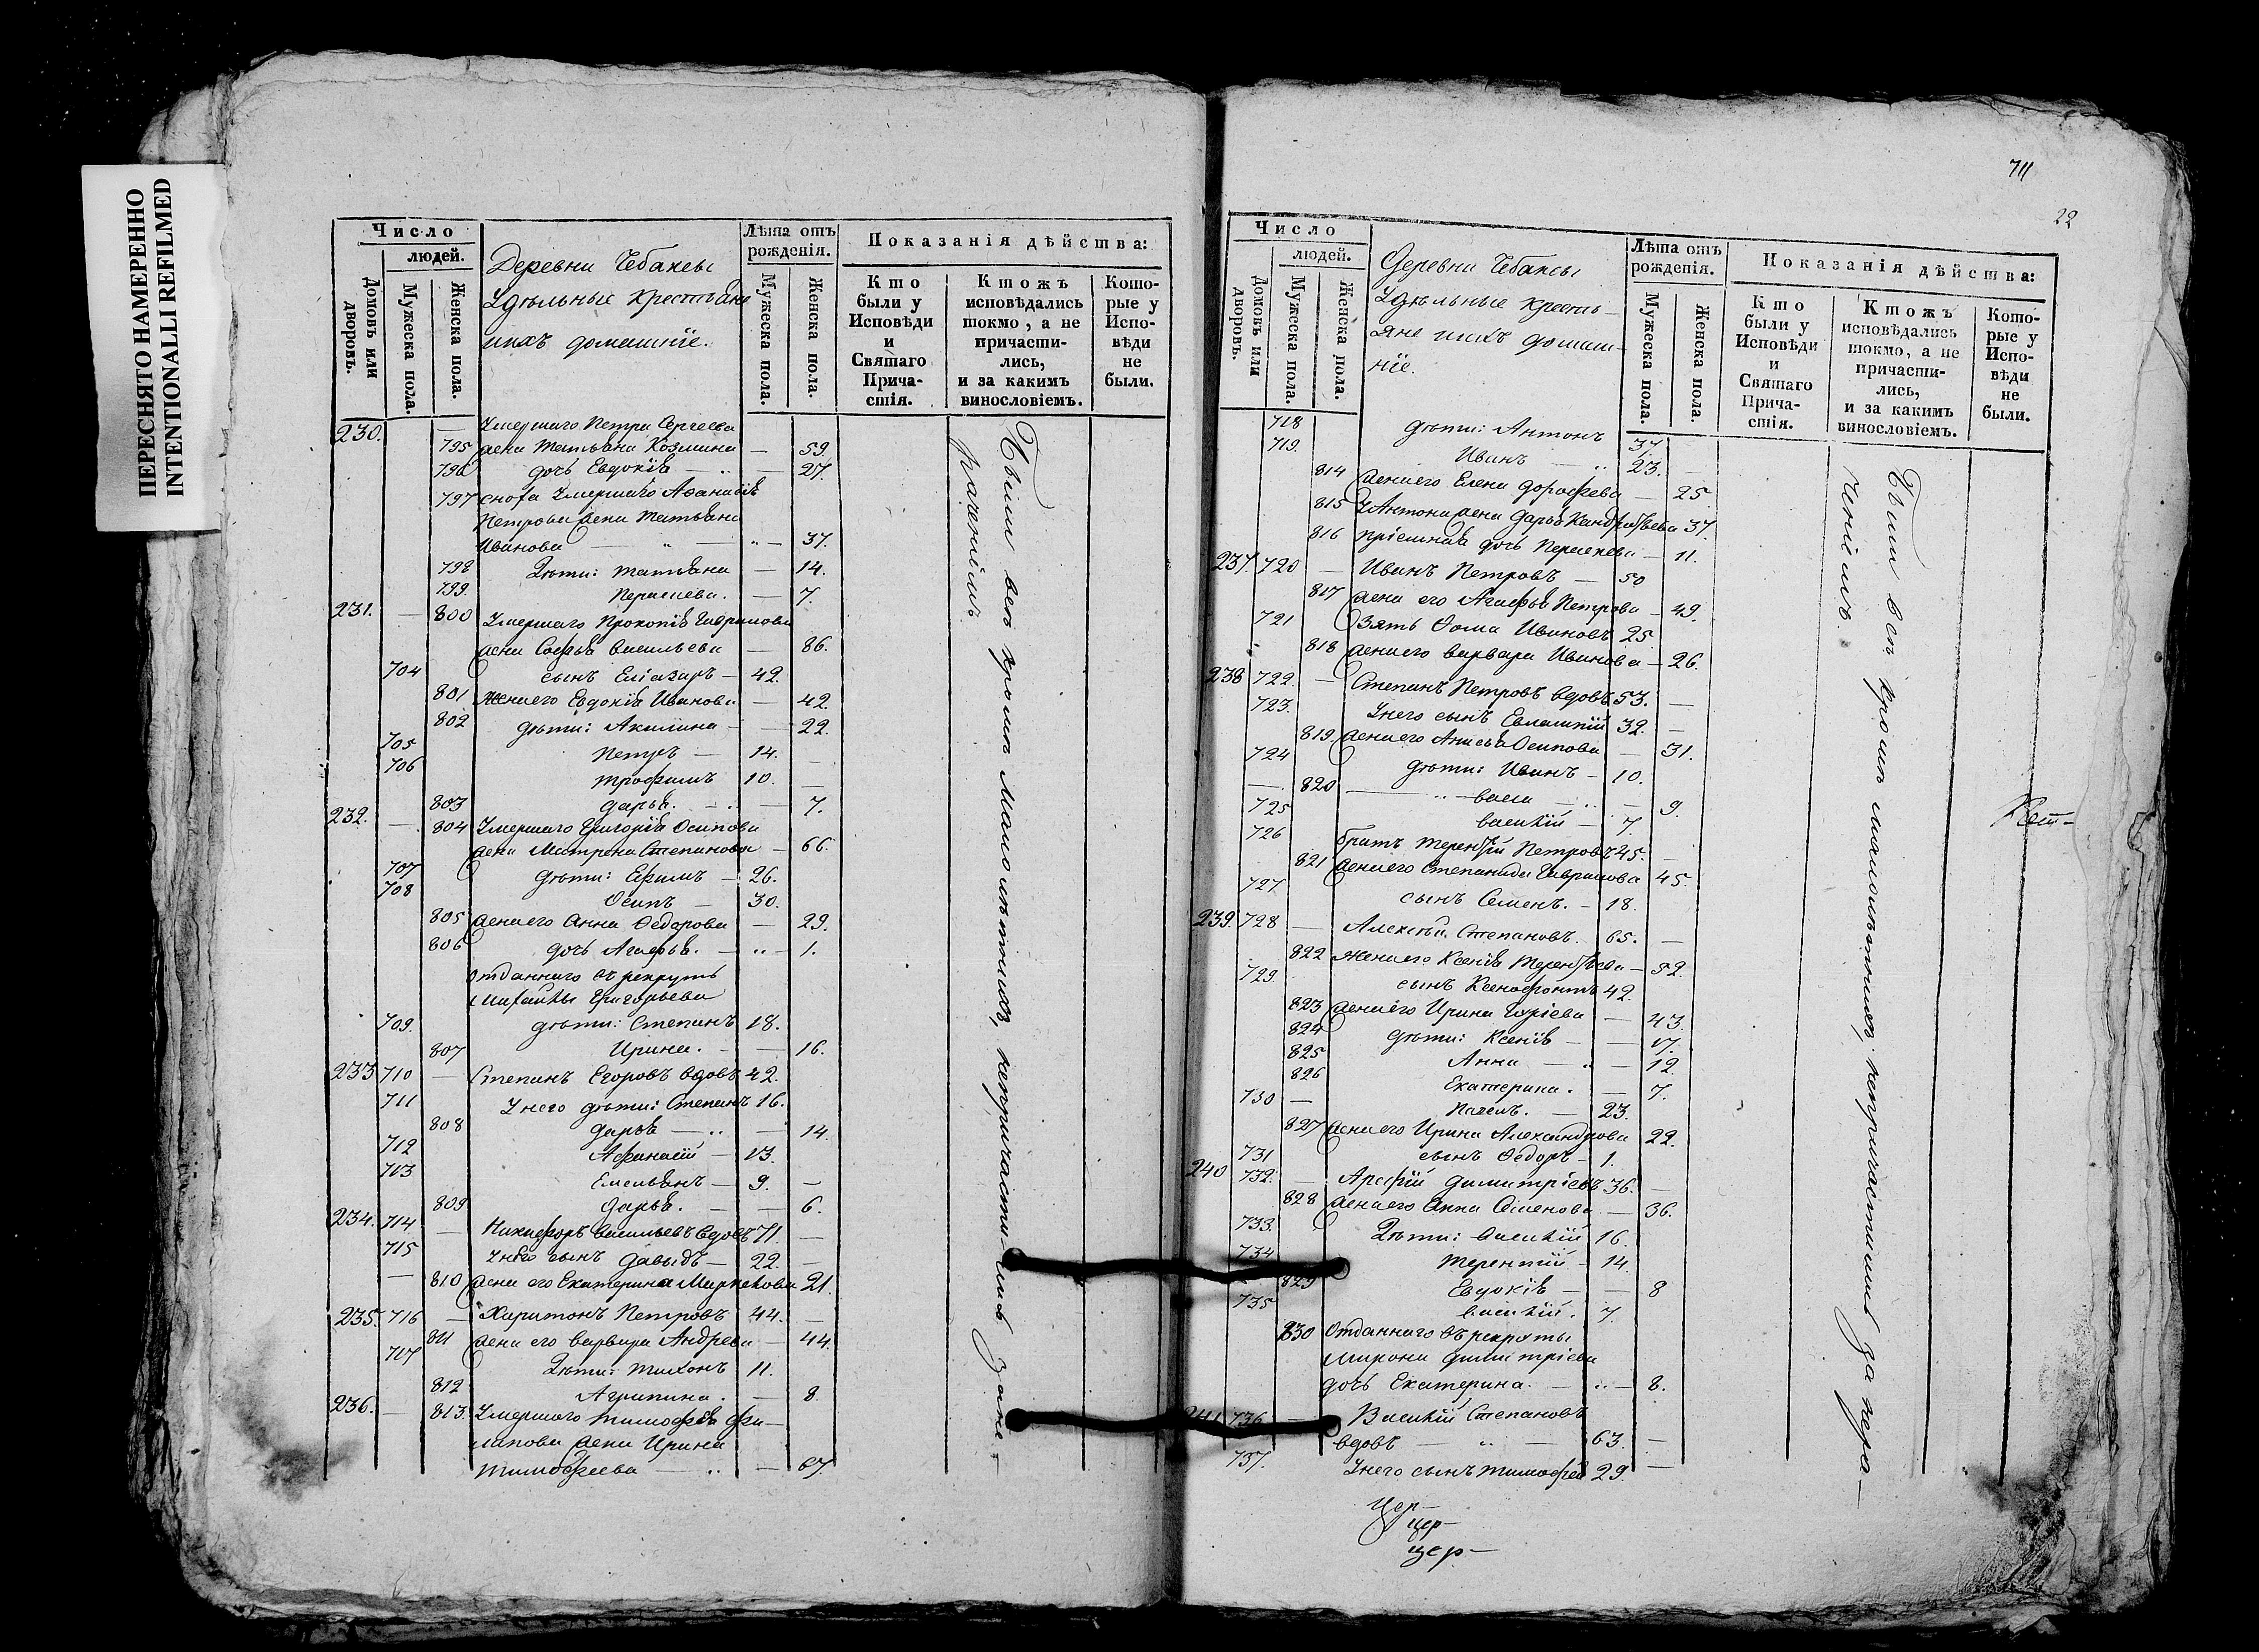 ПЕРЕСНЯТО НАМЕРЕННО
INTENTIONALLI REFILMED
Число
людей.
Домовъ или дворовъ.
Мужеска пола.
Женска пола.
Деревни Чебаксы
Удѣльные крестьяне
ихъ домашніе.
Лѣта отъ рожденія.
Мужеска пола.
Женска пола.
Показанія дѣйства:
Кто были у Исповѣди и Святаго Прича-стія.
Ктожъ исповѣдались токмо, а не причасти-лись, и за какимъ винословіемъ.
Кото-рые у Испо-вѣди не были.
230. — Умершаго Петра Сергеева
795 жена Татьяна Козмина — 59.
796 дочь Евдокія — 27.
797 сноха умершаго Афанасія
Петрова жена Татьяна
Иванова — 37.
798 Дѣти: Татьяна — 14.
799. Параскева. — 7.
231. — 800 Умершаго Прокопія Гаврилова
жена Софья Васильева — 86.
704 сынъ Еліазаръ — 42.
801 жена его Евдокія Иванова — 42.
802 дѣти: Акилина — 22.
705 Петръ — 14.
706 Трофимъ 10. —
803 Дарья. — 7.
232. — 804 Умершаго Григорія Осипова
жена Матрена Степанова — 66.
707 дѣти: Ефимъ — 26.
708 Осипъ — 30.
805 жена его Анна Федорова — 29.
806 дочь Агафья. — 1.
отданнаго въ рекруты
Михайлы Григорьева
709. дѣти: Степанъ 18.
807 Ирина. — 16.
233 710 — Степанъ Егоровъ вдовъ 42.
711 У него дѣти: Степанъ 16.
808 Дарья — 14.
712 Афанасій — 13.
713 Емельянъ — 9. —
809 Дарья. — 6.
234. 714 — Никифоръ Васильевъ вдовъ 71. —
715 У него сынъ Давыдъ — 22. —
— 810 жена его Екатерина 21.
235. 716 — Харитонъ Петровъ 44. —
811 жена его Варвара Андреева — 44.
717 Дѣти: Тихонъ 11.
812 Агрипина. — 8.
236. — 813. Умершаго Тимофея Фи-
липова жена Ирина
Тимофеева — 67.
Были всѣ кромѣ малолѣтнихъ, непричасти-шихъ за не-
раченіемъ
711
22
Число
людей.
Домовъ или дворовъ.
Мужеска пола.
Женска пола.
Деревни Чебаксы
Удѣльные кресть-
яне ихъ домаш-
ніе.
Лѣта отъ рожденія.
Мужеска пола.
Женска пола.
Показанія дѣйства:
Кто были у Исповѣди и Святаго Прича-стія.
Ктожъ исповѣдались токмо, а не причасти-лись, и за какимъ винословіемъ.
Кото-рые у Испо-вѣди не были.
718 дѣти: Антонъ 37.
719. Иванъ 23. —
814 жена его Елена Дорофеева — 25
815 У Антона жена Дарья 37.
816 пріемная дочь Параскева — 11.
237. 720 — Иванъ Петровъ — 50
817 жена его Агафья Петрова — 49.
721 Зять Фома Ивановъ 25
818 жена его Варвара Иванова — 26.
238 722. — Степанъ Петровъ вдовъ 53. —
723. У него сынъ Евлампій 32. —
819 жена его Анисья Осипова — 31.
724 дѣти: Иванъ — 10.
— 820 — 9.
725 Василій — 7.
726 братъ Терентій Петровъ 45. —
821 жена его Степанида Гаврилова 45.
727 сынъ Семенъ. — 18.
239. 728 — Алексѣй Степановъ. 65. —
822 жена его Ксенія Терентьева — 52.
729. сынъ Ксенофонтъ 42.
823 жена его Ирина — 43.
824 дѣти: Ксенія — 17.
825 Анна — 12
826 Екатерина. — 7.
730 — Павелъ. — 23.
827 жена его Ирина Александрова 22.
731 сынъ Федоръ — 1.
240 732. — Арефій Димитріевъ 36. —
828 жена его Анна Семенова — 36.
733. Дѣти: Василій 16.
734 Терентій — 14.
829 Евдокія — 8
735 Василій. 7.
830 отданнаго въ рекруты
Мирона Димитріева
дочь Екатерина. — 8.
241 736 — Василій Степановъ
вдовъ — 63. —
737. У него сынъ Тимофей 29. —
Были всѣ кромѣ малолѣтнихъ, непричастишихъ за нера-
ченіемъ.
Цер-
цер-
цер-